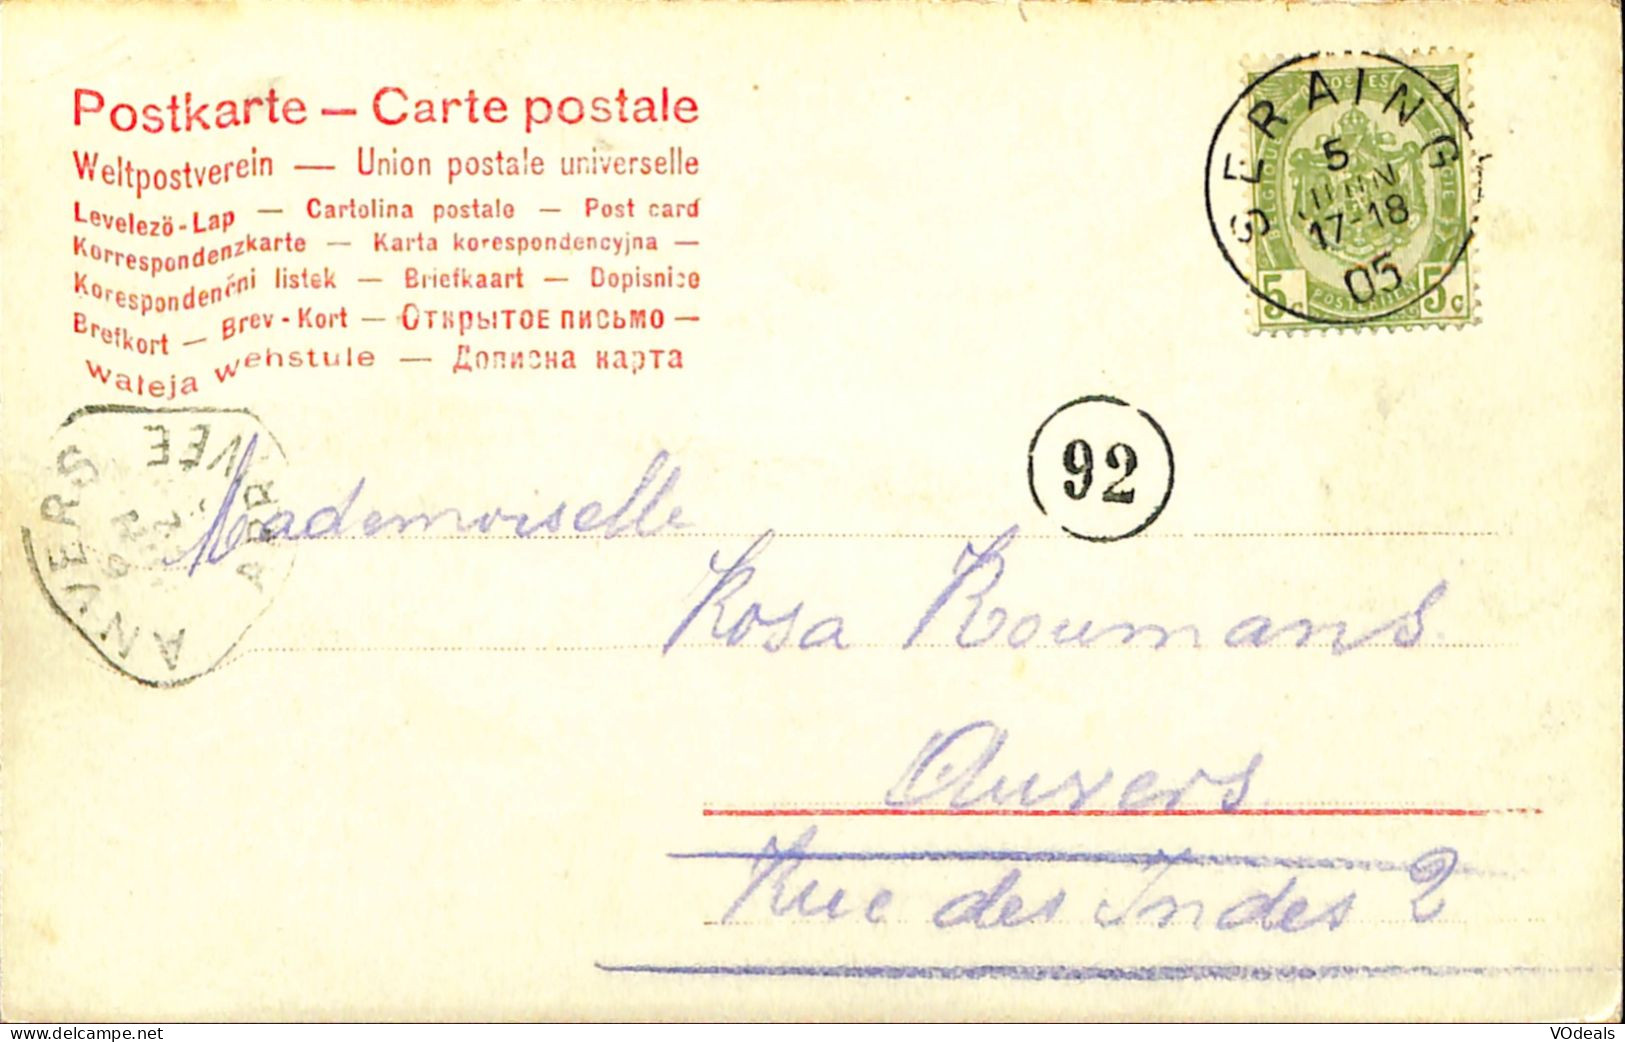 Postkarte — Carte postale
Weltpostverein — Union postale universelle
Levelező-Lap — Cartolina postale — Post card
Korrespondenzkarte — Karta korespondencyjna —
Korespondenční listek — Briefkaart — Dopisnice
Brefkort — Brev-Kort — Открытое письмо —
Waleja wehstule — Дописна карта
SERAING
5
JUIN
17-18
05
POSTES
BELGIQUE
BELGIE
5c
POSTERIJEN
5c
92
ANVERS
ARRIVEE
Mademoiselle
Rosa Roumans
Anvers
Rue des Indes 2
www.delcampe.net
VOdeals